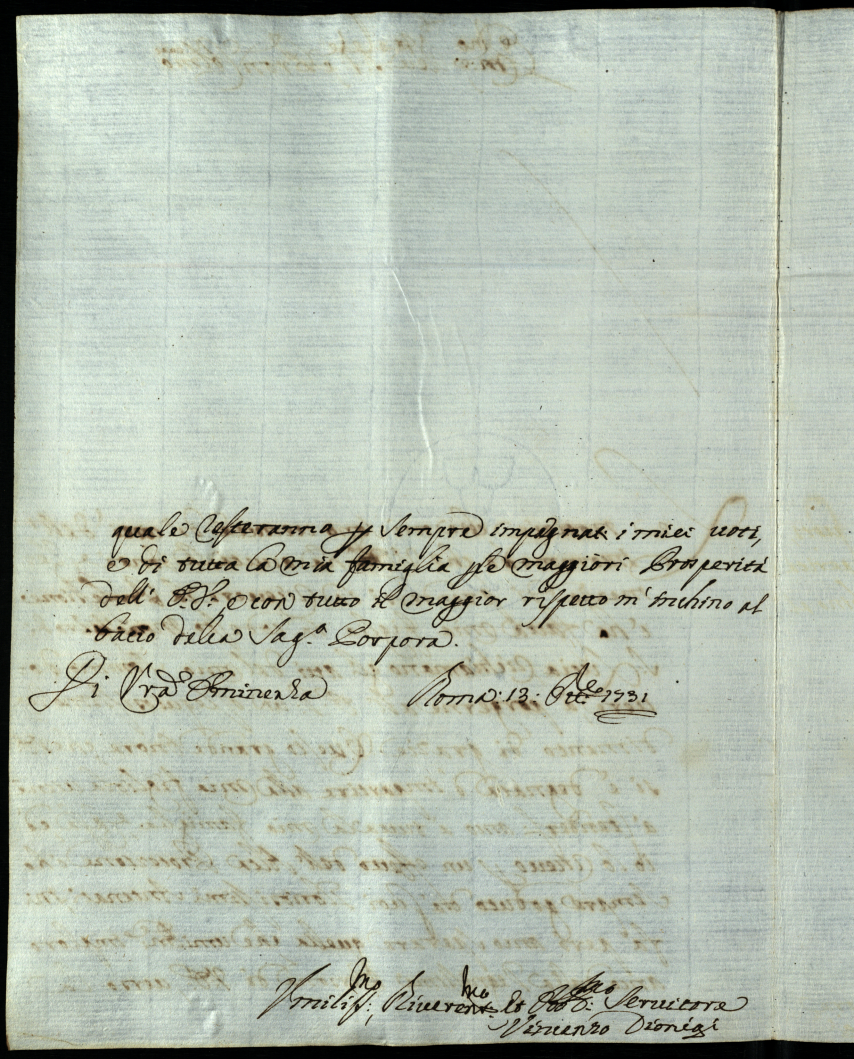 quale resteranno p sempre impegnati i miei voti,
e di tutta la mia famiglia p le maggiori Prosperità
dell' E: V:, e con tutto il maggior rispetto m'inchino al
bacio della Sag.a Porpora.
Di Vra Eminenza Roma: 13: 1731
Umiliss:mo, Riverent:mo et Obb:mo Servitore
Vincenzo Dionigi